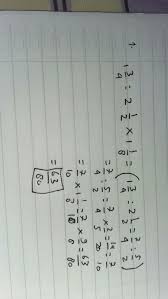 1.
1 3/4 ÷ 2 1/2 × 1 1/8 = (1 3/4 ÷ 2 1/2 = 7/4 ÷ 5/2)
= 7/4 ÷ 5/2 = 7/4 × 2/5 = 14/20 = 7/10
= 7/10 × 1 1/8 = 7/10 × 9/8 = 63/80
= 63/80